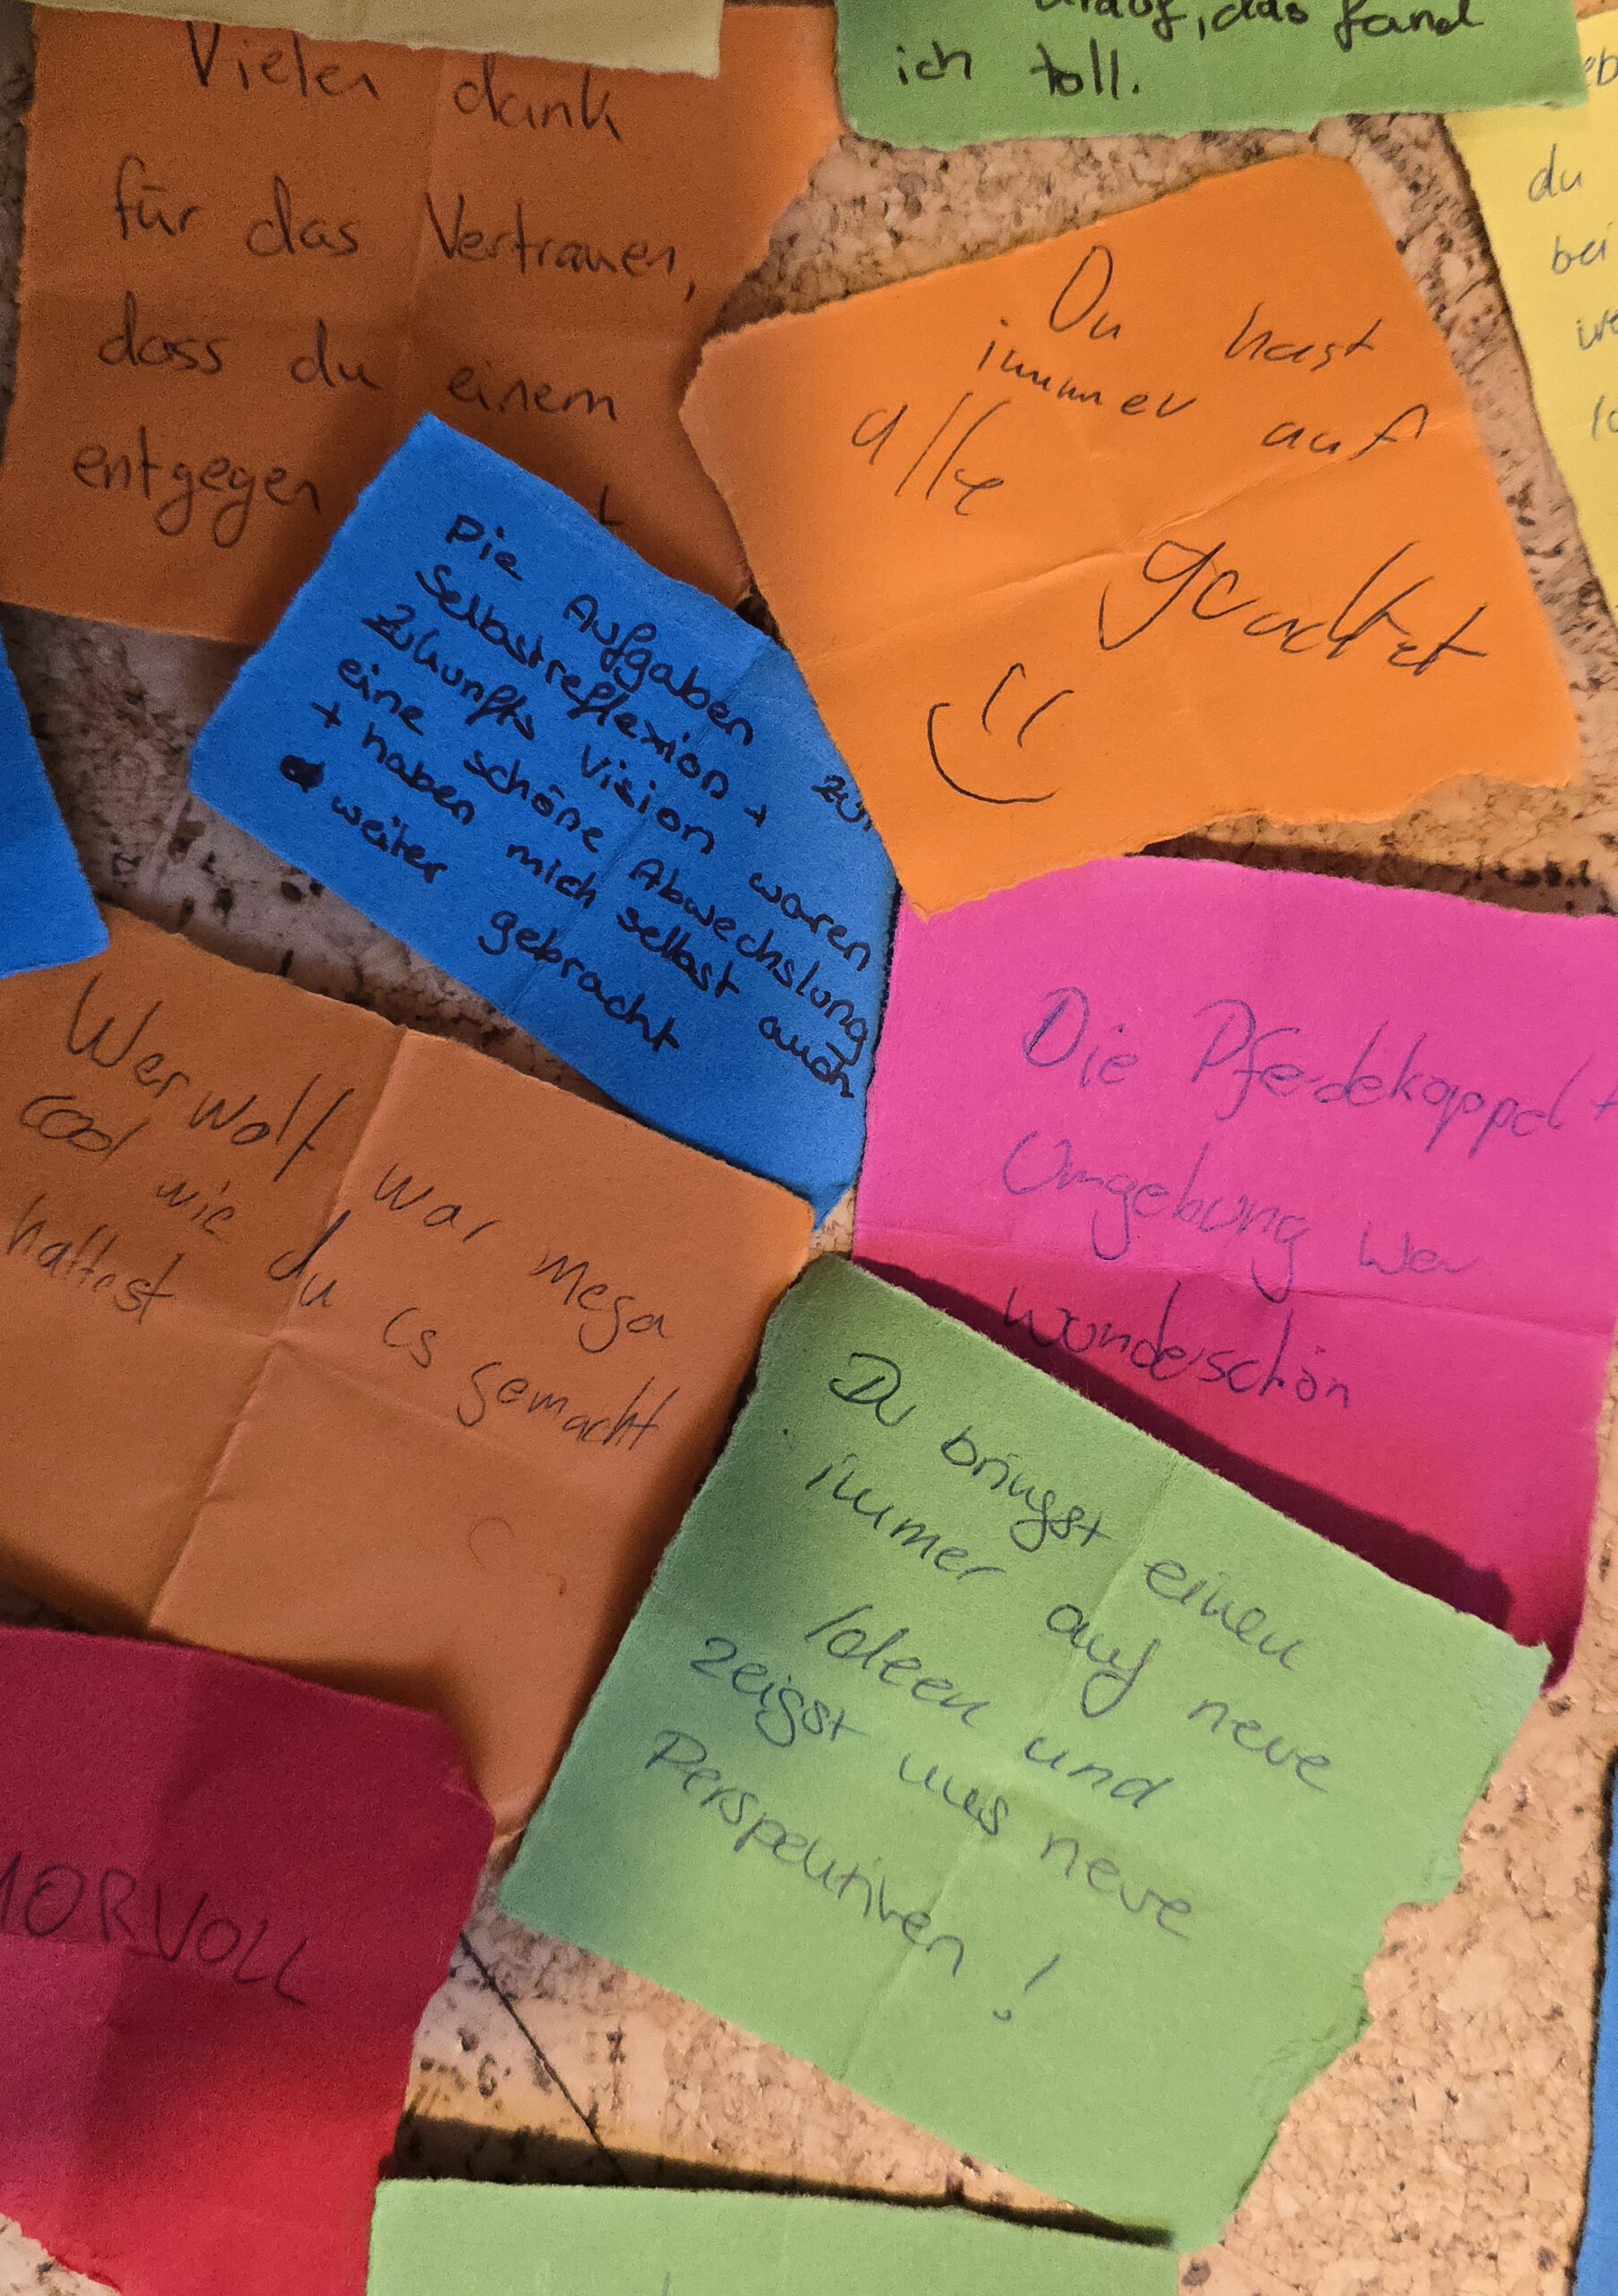 Vielen dank
für das Vertrauen,
dass du einem
entgegen
das fand
ich toll.
du
bei
Du hast
immer auf
alle
geachtet
Die Aufgaben zur
Selbstreflexion +
Zukunfts Vision waren
eine schöne Abwechslung
+ haben mich selbst auch
weiter gebracht
Die Pferdekoppel +
Umgebung war
wunderschön
Werwolf war mega
cool wie du es gemacht
hattest
Du bringst einen
immer auf neue
Ideen und
zeigst uns neue
Perspektiven!
MORVOLL